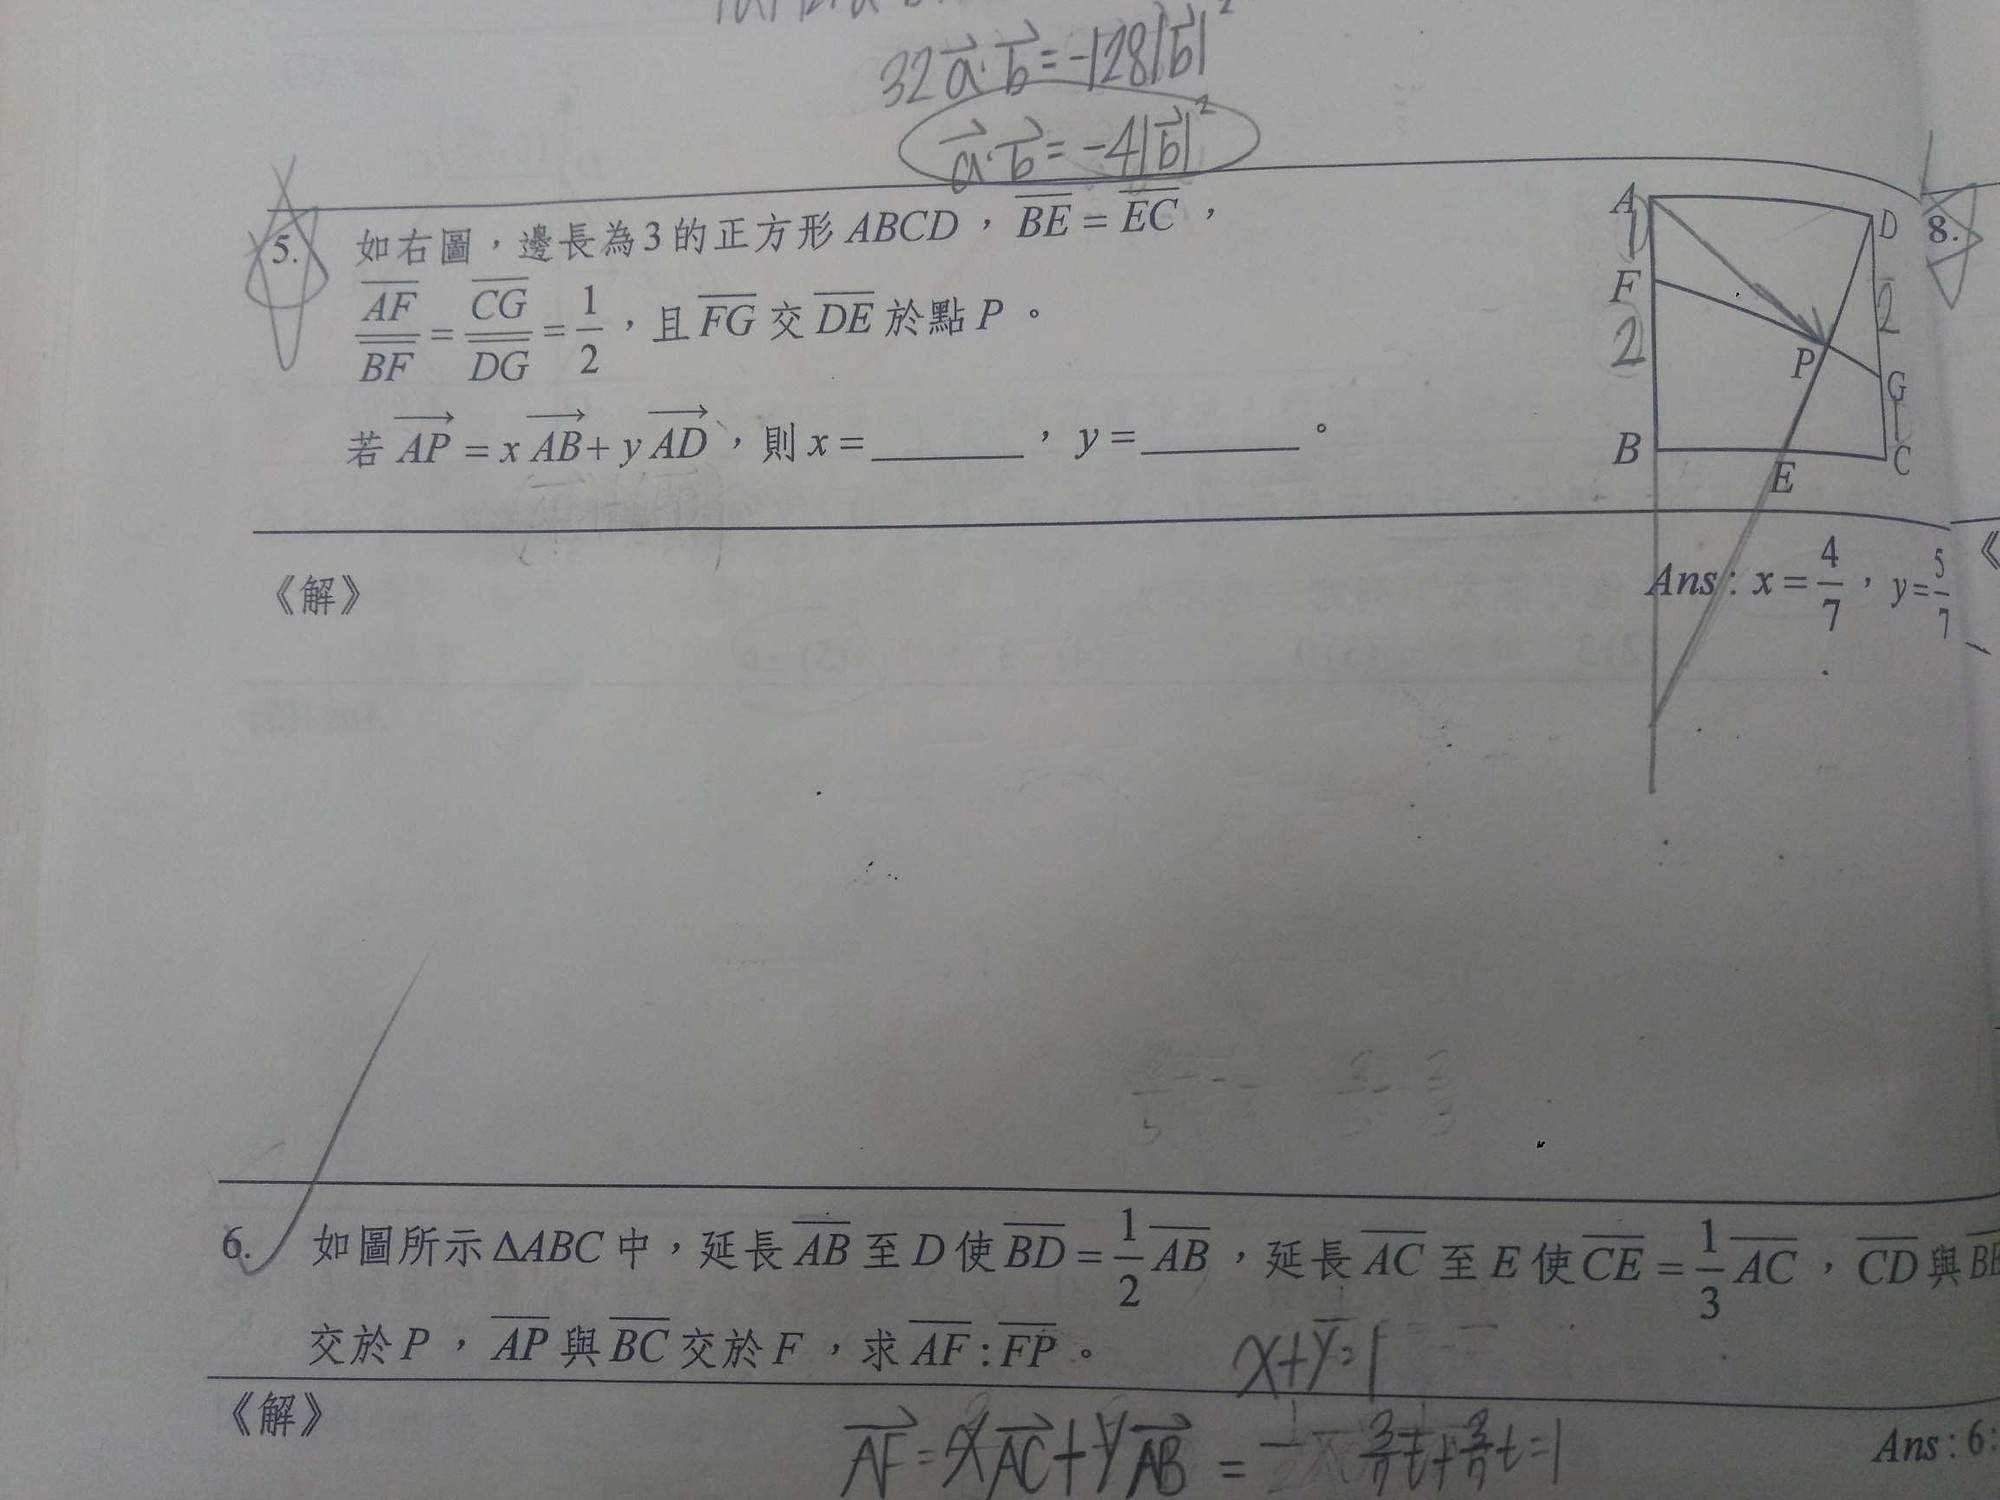 32a⃗·b⃗=-128|b⃗|²
a⃗·b⃗=-4|b⃗|²
5. 如右圖，邊長為3的正方形ABCD，BE=EC，
AF/BF=CG/DG=1/2，且FG交DE於點P。
若AP=xAB+yAD，則x=______，y=______。
A
D
1
F
2
2
P
G
1
B
E
C
8.
《解》
Ans：x=4/7，y=5/7
6. 如圖所示ΔABC中，延長AB至D使BD=1/2AB，延長AC至E使CE=1/3AC，CD與BE
交於P，AP與BC交於F，求AF:FP。
x+y=1
《解》
AF=xAC+yAB=
t=1
Ans：6: